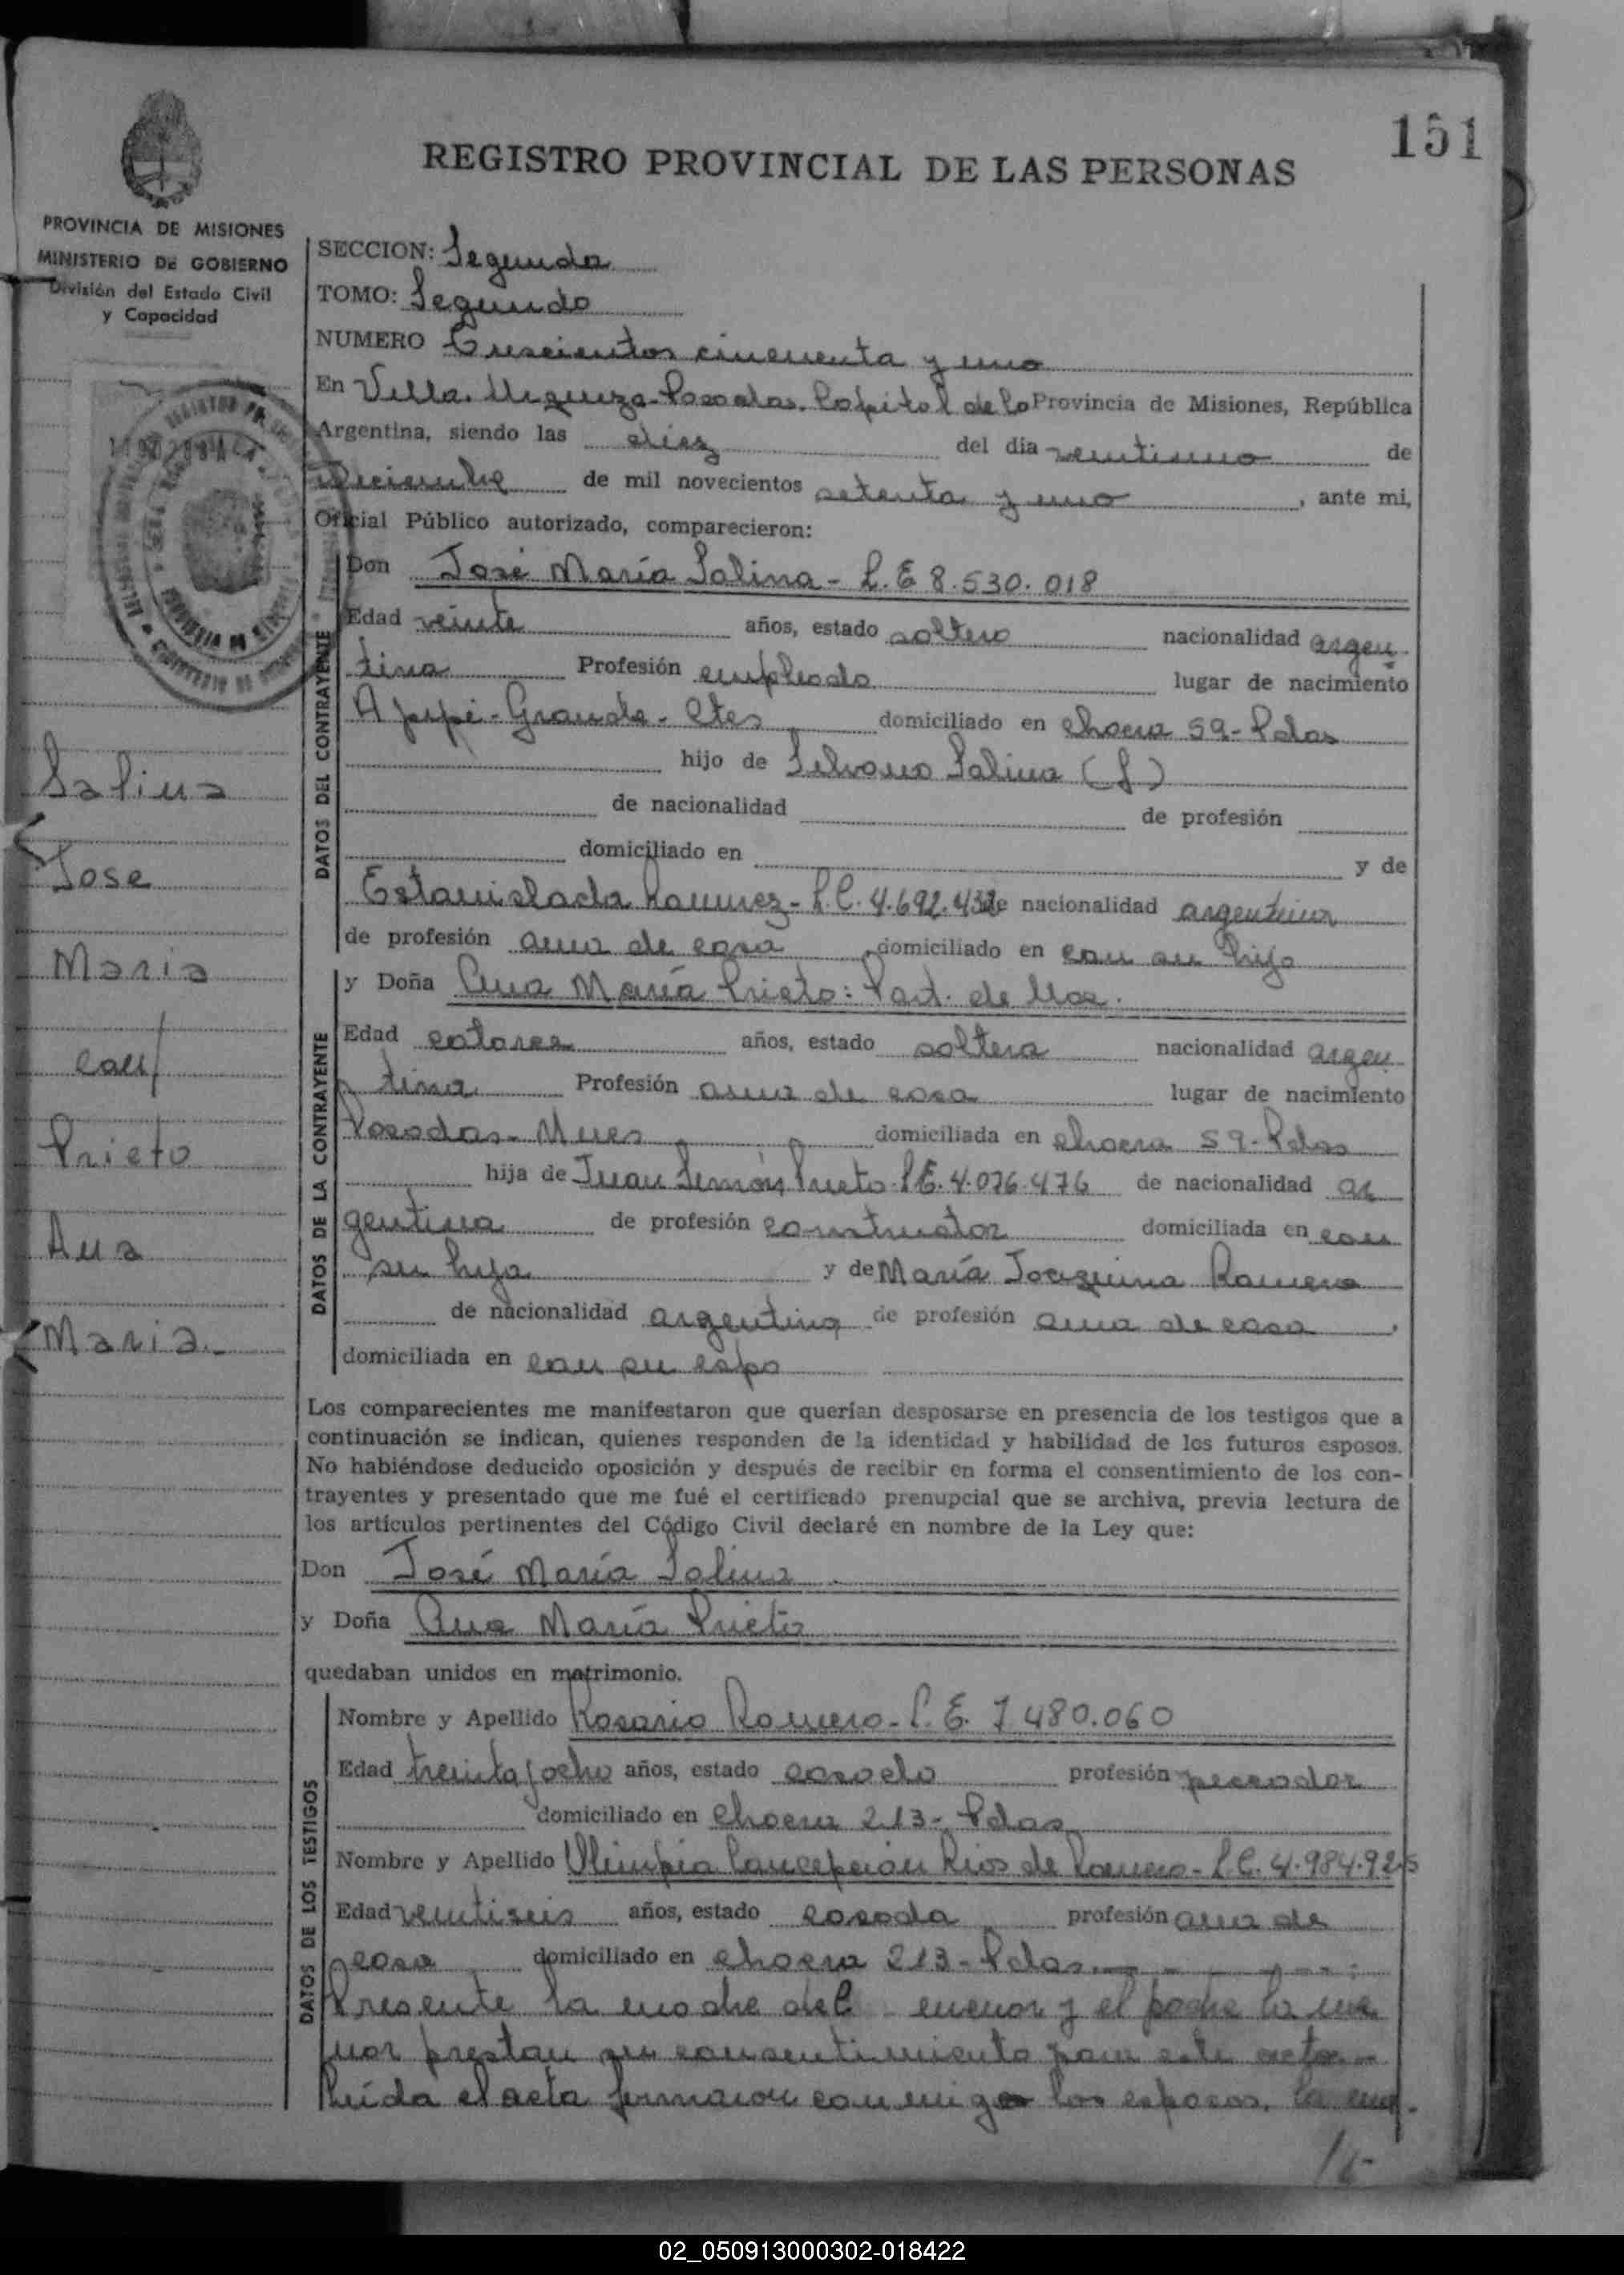 151
REGISTRO PROVINCIAL DE LAS PERSONAS
PROVINCIA DE MISIONES
MINISTERIO DE GOBIERNO
División del Estado Civil
y Capacidad
SECCION: Segunda
TOMO: Segundo
NUMERO Trescientos cincuenta y uno
En Villa Urquiza - Posadas, Capital de la Provincia de Misiones, República
Argentina, siendo las diez del día veintiuno de
Diciembre de mil novecientos setenta y uno, ante mi,
Oficial Público autorizado, comparecieron:
DATOS DEL CONTRAYENTE
Don José María Salina - L.E 8.530.018
Edad veinte años, estado soltero nacionalidad argen
tina Profesión empleado lugar de nacimiento
Apipé - Grande - Ctes domiciliado en chacra 59 - Pdas
hijo de Silvano Salina (f)
de nacionalidad de profesión
domiciliado en y de
Estanislada Ramirez - L.C. 4.692.432 de nacionalidad argentina
de profesión ama de casa domiciliado en con su hijo
DATOS DE LA CONTRAYENTE
y Doña Ana María Prieto: Part. de Nac.
Edad catorce años, estado soltera nacionalidad argen
tina Profesión ama de casa lugar de nacimiento
Posadas - Mnes domiciliada en chacra 59 - Pdas
hija de Juan Simón Prieto L.E. 4.076.476 de nacionalidad ar
gentina de profesión constructor domiciliada en con
su hija y de María Joaquina Romero
de nacionalidad argentina de profesión ama de casa
domiciliada en con su espo
Los comparecientes me manifestaron que querían desposarse en presencia de los testigos que a
continuación se indican, quienes responden de la identidad y habilidad de los futuros esposos.
No habiéndose deducido oposición y después de recibir en forma el consentimiento de los con-
trayentes y presentado que me fué el certificado prenupcial que se archiva, previa lectura de
los artículos pertinentes del Código Civil declaré en nombre de la Ley que:
Don José María Salina
y Doña Ana María Prieto
quedaban unidos en matrimonio.
DATOS DE LOS TESTIGOS
Nombre y Apellido Rosario Romero - L.E. 7.480.060
Edad treinta y ocho años, estado casado profesión pescador
domiciliado en chacra 213 - Pdas
Nombre y Apellido Olimpia Concepción Rios de Romero - L.C. 4.984.925
Edad veintiseis años, estado casada profesión ama de
casa domiciliado en chacra 213 - Pdas
Presente la madre del menor y el padre la me
nor prestan su consentimiento para este acto
Leída el acta firmaron conmigo los esposos, la
Salina
Jose
Maria
con/
Prieto
Ana
Maria
02_050913000302-018422